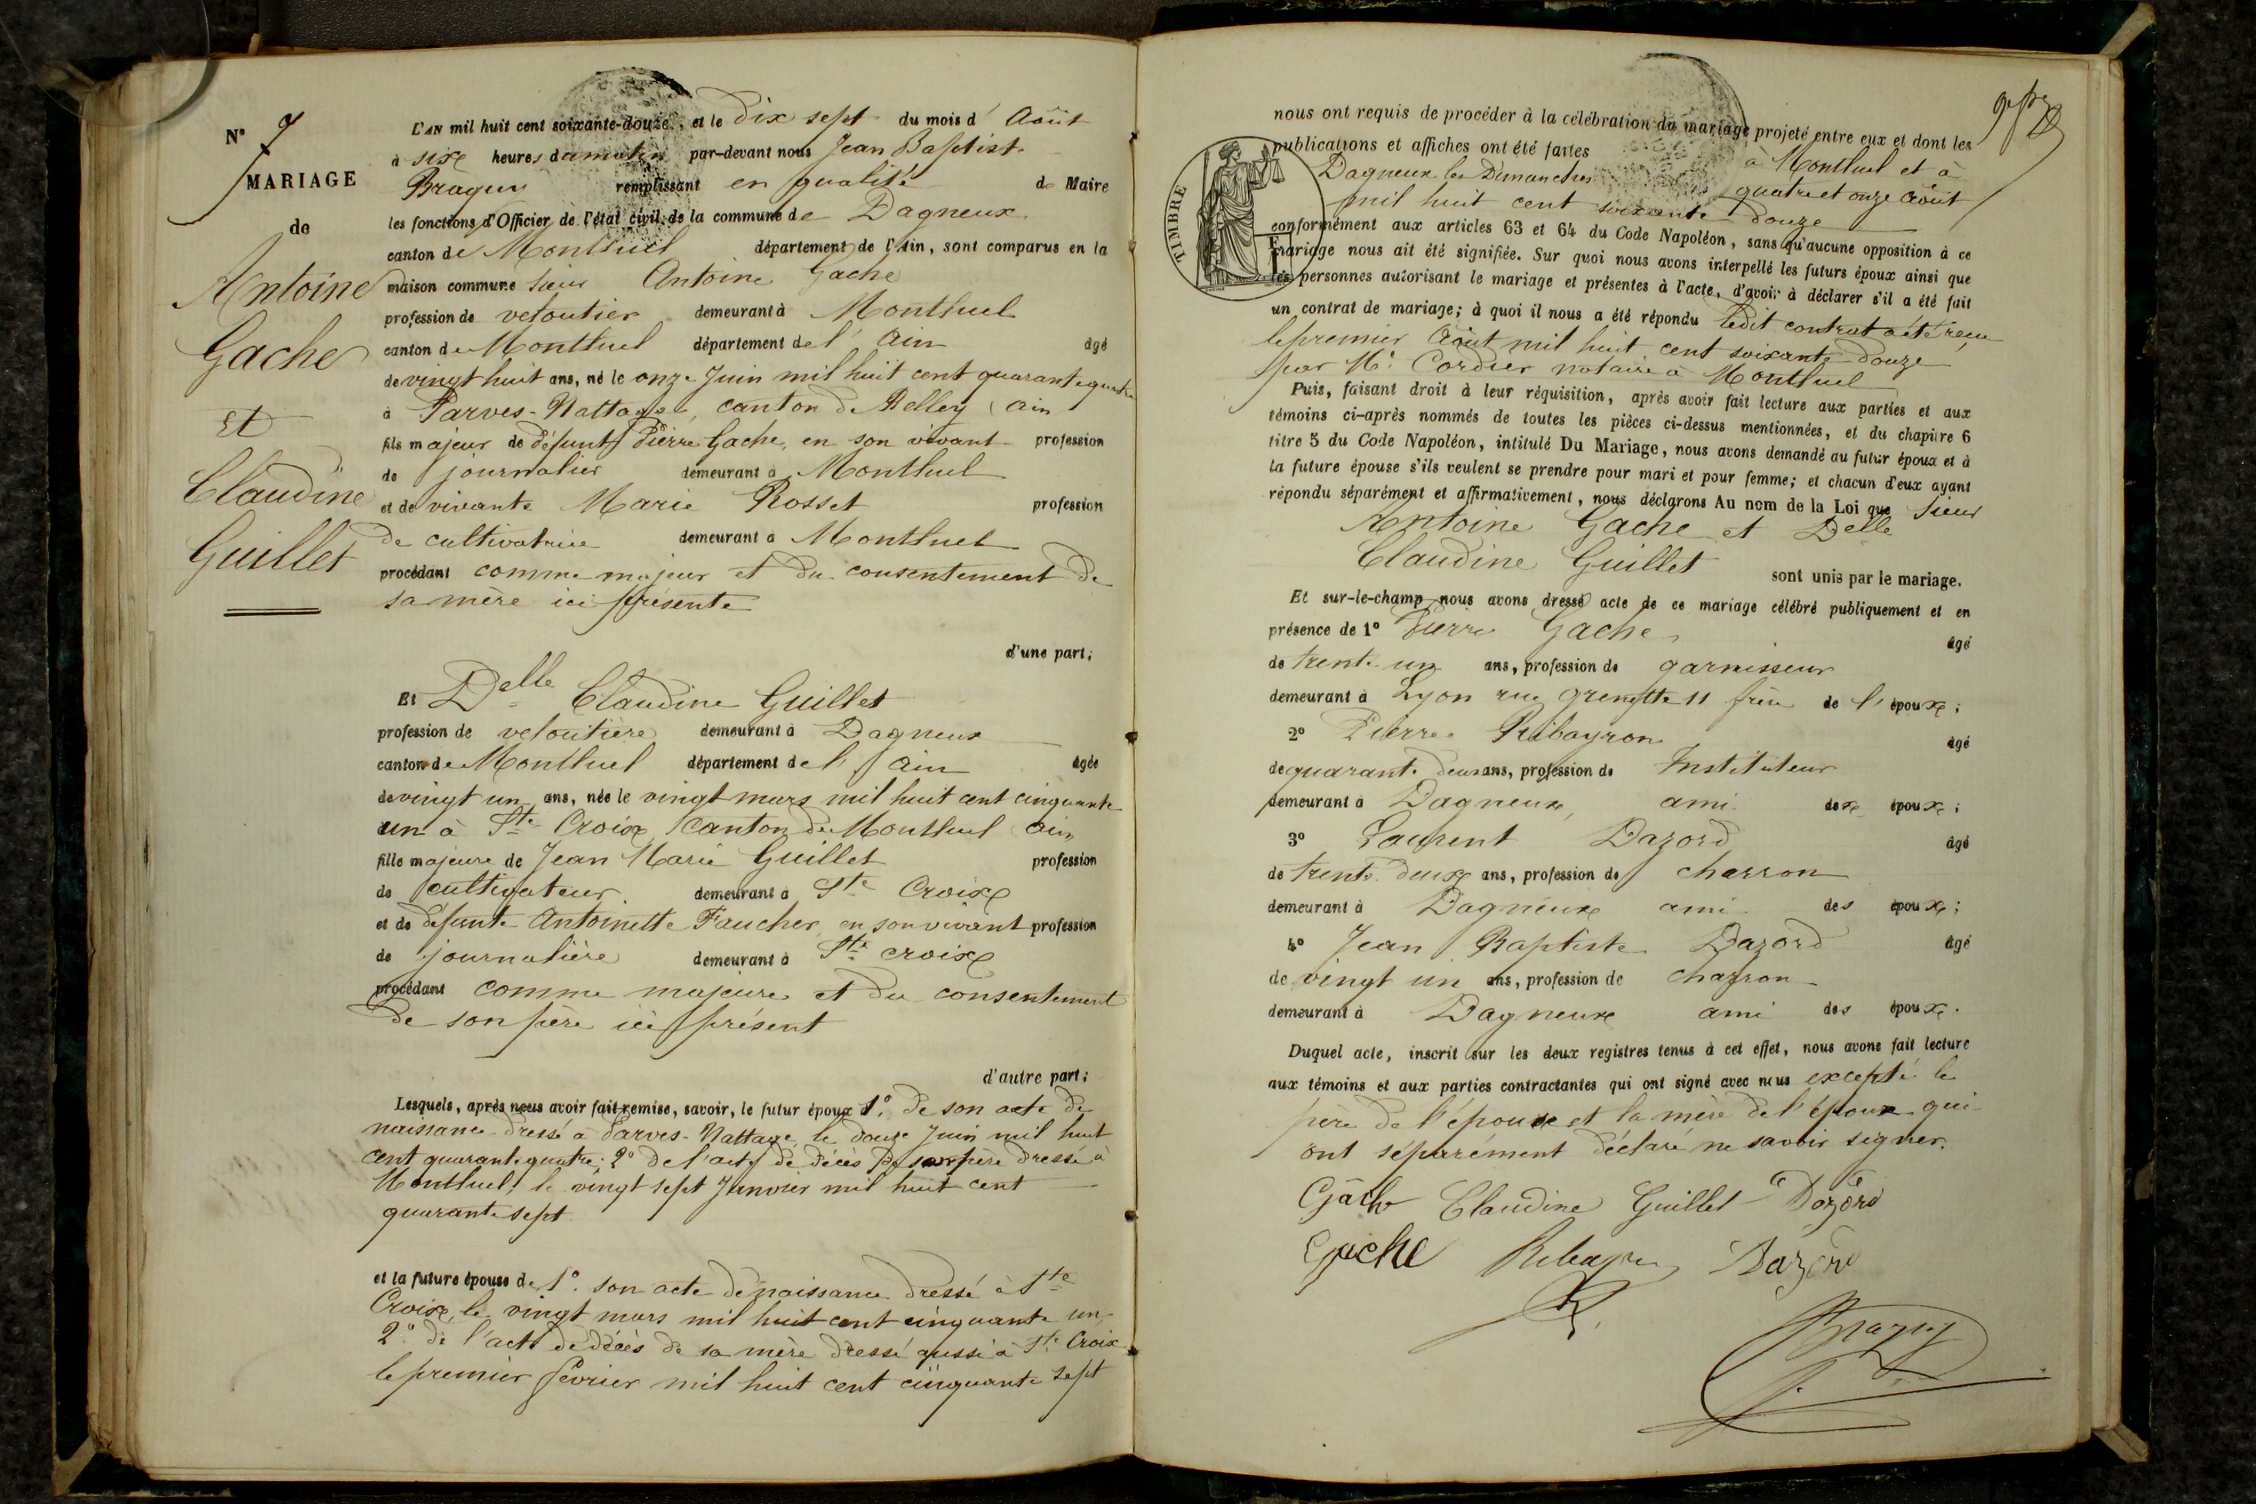 N° 7
MARIAGE
de
Antoine
Gache
Et
Claudine
Guillet
L'AN mil huit cent soixante-douze, et le dix sept du mois d' Août
à six heures du matin par-devant nous Jean Baptiste
remplissant en qualité de Maire
les fonctions d'Officier de l'état civil de la commune de Dagneux
canton de Montluel département de l'Ain, sont comparus en la
maison commune sieur Antoine Gache
profession de veloutier demeurant à Montluel
canton de Montluel département de l' Ain âgé
de vingt huit ans, né le onze Juin mil huit cent quarante quatre
à Parves-Nattages, canton de Belley Ain
fils majeur de défunt Pierre Gache, en son vivant profession
de journalier demeurant à Montluel
et de vivante Marie Rosset profession
de cultivatrice demeurant à Montluel
procédant comme majeur et du consentement de
sa mère ici présente
d'une part;
Et Delle Claudine Guillet
profession de veloutière demeurant à Dagneux
canton de Montluel département de l' Ain âgée
de vingt un ans, née le vingt mars mil huit cent cinquante
un à Ste Croix, canton de Montluel Ain
fille majeure de Jean Marie Guillet profession
de cultivateur demeurant à Ste Croix
et de défunte Antoinette Faucher, en son vivant profession
de journalière demeurant à Ste croix
procédant comme majeure et du consentement
de son père ici présent
d'autre part;
Lesquels, après nous avoir fait remise, savoir, le futur époux 1° de son acte de
naissance dressé à Parves-Nattage le douze Juin mil huit
cent quarante quatre; 2° de l'acte de décès de son père dressé à
Montluel, le vingt sept Janvier mil huit cent
quarante sept
et la future épouse de 1° son acte de naissance dressé à Ste
Croix, le vingt mars mil huit cent cinquante un,
2° de l'acte de décès de sa mère dressé aussi à Ste Croix
le premier février mil huit cent cinquante sept
nous ont requis de procéder à la célébration du mariage projeté entre eux et dont les
publications et affiches ont été faites à Montluel et à
Dagneux les Dimanches quatre et onze Août
mil huit cent soixante douze
TIMBRE
conformément aux articles 63 et 64 du Code Napoléon, sans qu'aucune opposition à ce
mariage nous ait été signifiée. Sur quoi nous avons interpellé les futurs époux ainsi que
les personnes autorisant le mariage et présentes à l'acte, d'avoir à déclarer s'il a été fait
un contrat de mariage; à quoi il nous a été répondu ledit contrat a été reçu
le premier Août mil huit cent soixante douze
par Me Cordier notaire à Montluel
Puis, faisant droit à leur réquisition, après avoir fait lecture aux parties et aux
témoins ci-après nommés de toutes les pièces ci-dessus mentionnées, et du chapitre 6
titre 5 du Code Napoléon, intitulé Du Mariage, nous avons demandé au futur époux et à
la future épouse s'ils veulent se prendre pour mari et pour femme; et chacun d'eux ayant
répondu séparément et affirmativement, nous déclarons Au nom de la Loi que sieur
Antoine Gache et Delle
Claudine Guillet sont unis par le mariage.
Et sur-le-champ nous avons dressé acte de ce mariage célébré publiquement et en
présence de 1° Pierre Gache âgé
de trente un ans, profession de garnisseur
demeurant à Lyon rue Grenette 11 frère de l' époux;
2° Pierre Ribayron âgé
de quarante deux ans, profession de Instituteur
demeurant à Dagneux, ami des époux;
3° Laurent Dazord âgé
de trente deux ans, profession de charron
demeurant à Dagneux ami des époux;
4° Jean Baptiste Dazord âgé
de vingt un ans, profession de charron
demeurant à Dagneux ami des époux.
Duquel acte, inscrit sur les deux registres tenus à cet effet, nous avons fait lecture
aux témoins et aux parties contractantes qui ont signé avec nous excepté le
père de l'épouse et la mère de l'époux qui
ont séparément déclaré ne savoir signer.
Gache Claudine Guillet Dazord
Gache Dazord